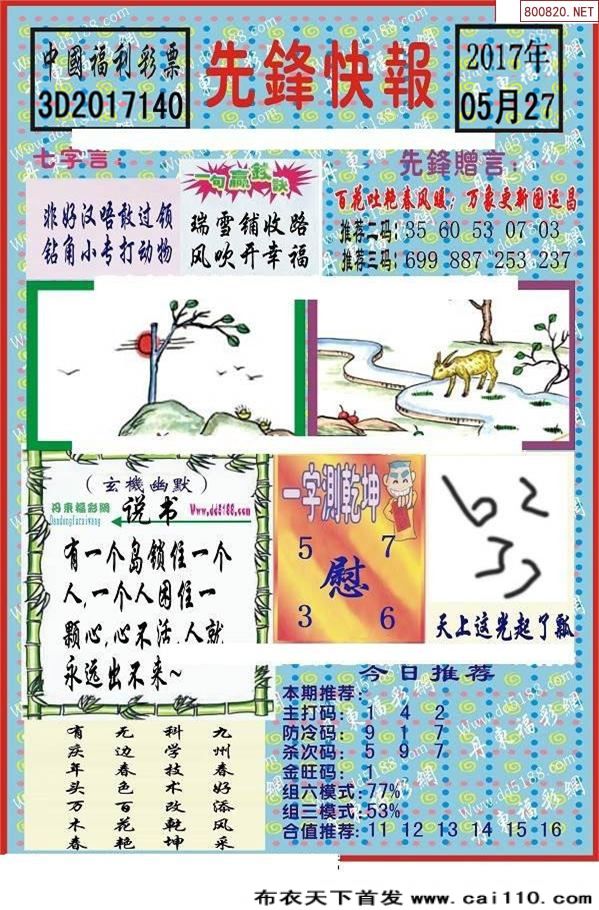 800820.NET
中國福利彩票
3D2017140
先鋒快報
2017年
05月27
七字言：
非好汉唔敢过领
钻角小专打动物
一句赢钱诀
瑞雪铺收路
风吹开幸福
先鋒贈言：
百花吐艳春风暖；万象更新国运昌
推荐二码：35 60 53 07 03
推荐三码：699 887 253 237
（玄機幽默）
丹東福彩網
Dandongfucaiwang
说书
Www.dd5188.com
有一个岛锁住一个
人,一个人困住一
颗心,心不活,人就
永远出不来~
一字測乾坤
5 7
慰
3 6
天上这光起了瓢
今日推荐
本期推荐：
主打码：1 4 2
防冷码：9 1 7
杀次码：5 9 7
金旺码：1
组六模式：77%
组三模式：53%
合值推荐：11 12 13 14 15 16
九州春好添风采
科学技术改乾坤
无边春色百花艳
有庆年头万木春
布衣天下首发 www.cai110.com